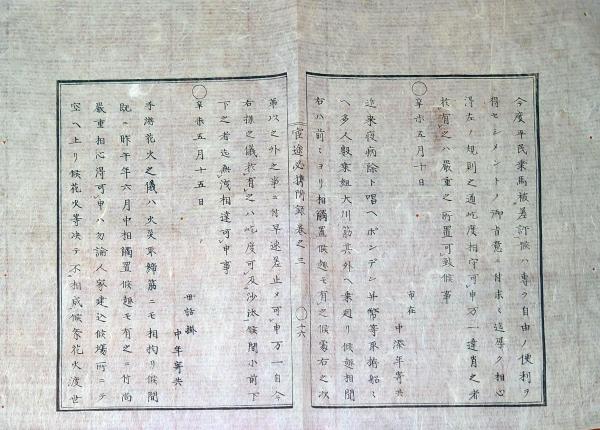 今度平民乗馬被差許候ハ専ラ自由ノ便利ヲ
得セシメントノ御旨意ニ付末々迄厚ク相心
得左ノ規則之通屹度相守可申万一違背之者
於有之ハ厳重之所置可致候事
市在
中添年寄共
○
辛未五月十日
近来疫病除ト唱ヘボンデン幷幣等取拵船ニ
ヘ多人数乗組大川筋其外ヘ乗廻リ候趣相聞
右ハ前々ヨリ相觸置候趣モ有之候處右之次
官途必携附録巻之三
○十六
第以之外之事ニ付早速差止メ可申万一自今
右様之儀於有之ハ屹度可及沙汰候間小前下
下之者迄無洩相達可申事
○
辛未五月十五日
世話掛
中年寄共
手遊花火之儀ハ火災取締筋ニモ相拘リ候間
既ニ昨午年六月中相觸置候趣モ有之ニ付尚
嚴重相心得可申ハ勿論人家建込候場所ニテ
空ヘ上リ候花火等決テ不相成候条花火渡世